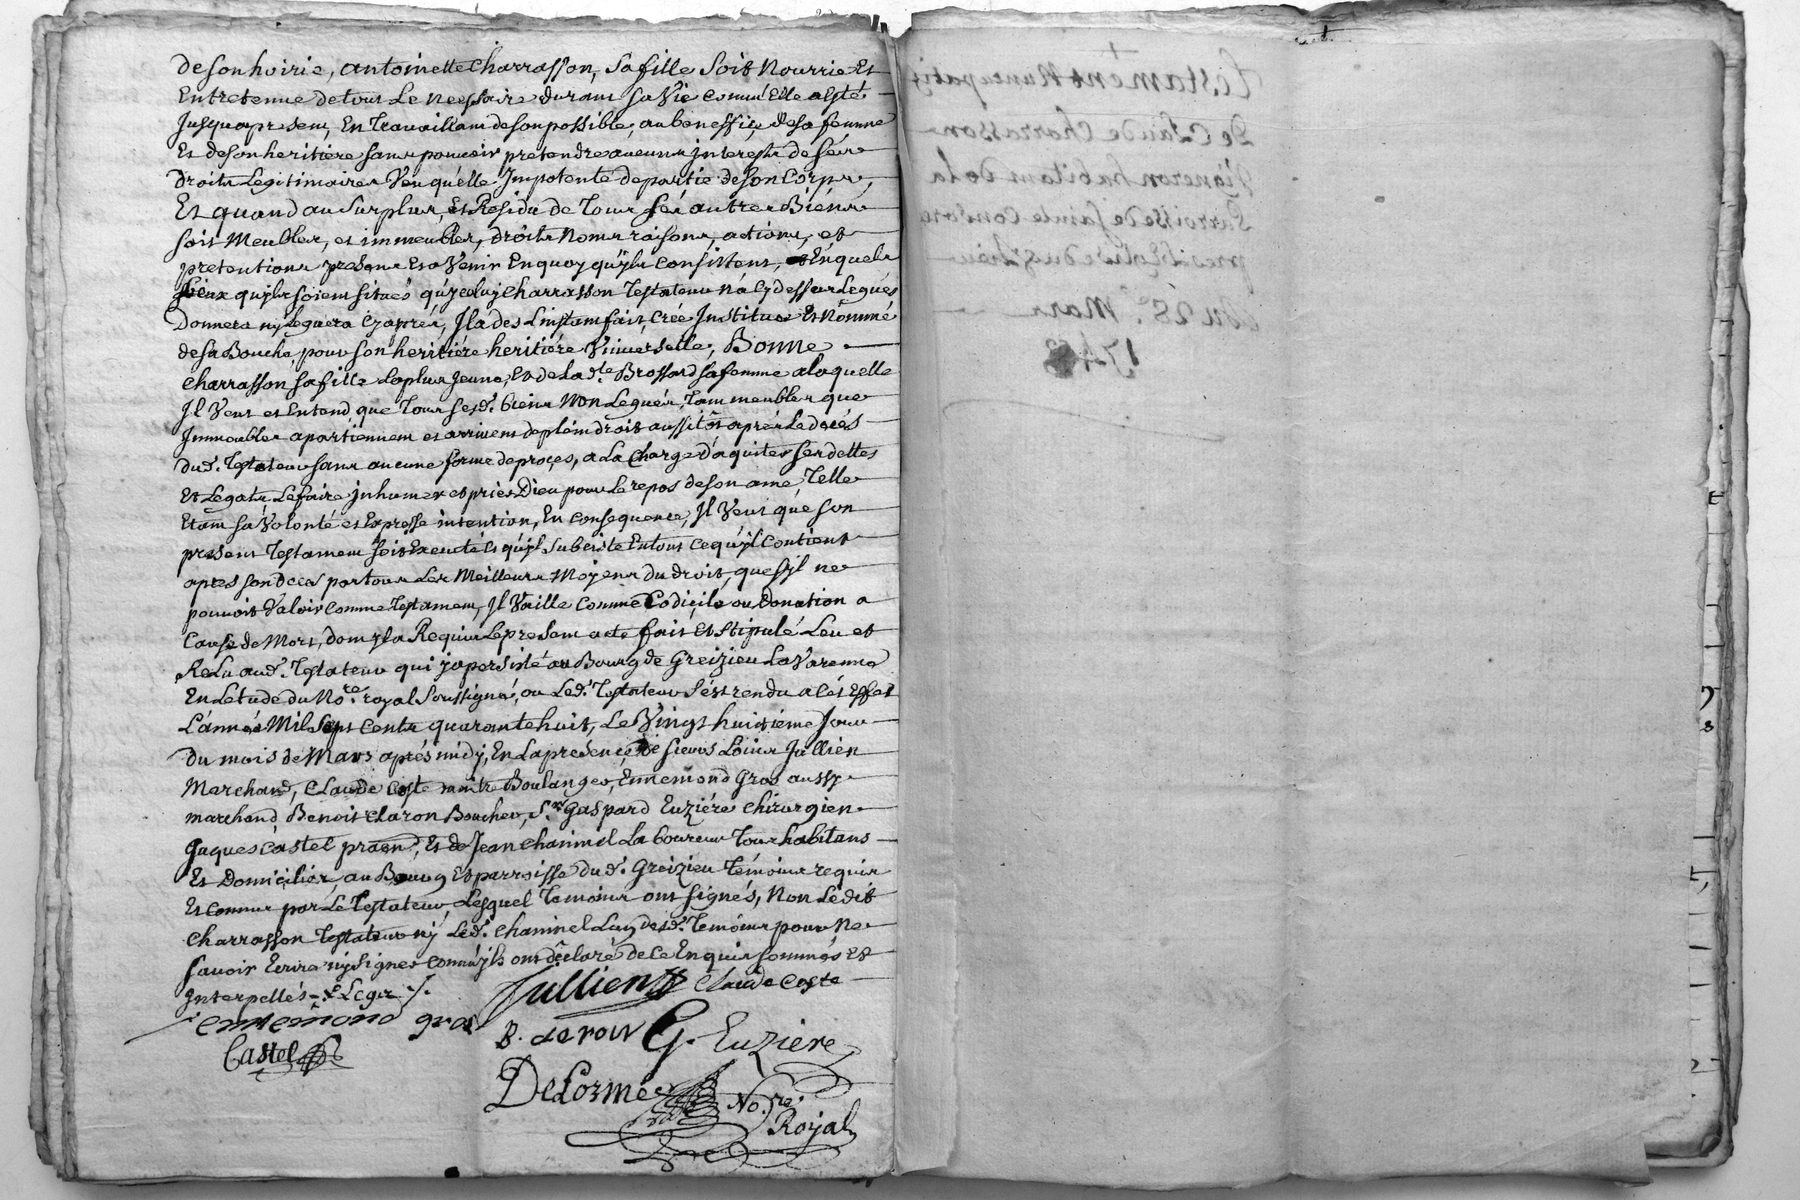 de son hoirie, antoinette Charrasson, sa fille soit nourrie Et
Entretenue de tous Le nessaire durant sa vie comm'Elle a esté
Jusqu'apresent, En Travaillant de son possible, au beneffiçe de sa femme
Et de son heritiere sans pouvoir pretendre aucuns jnterests de ses
droits Legitimaires Veu qu'elle Impotente de partie de son Corps,
Et quand au Surplus, et Residu de Tous ses autres Biens
soit Meubles, et immeubles, droits Noms raisons, actions, et
pretentions presens Et a Venir En quoy qu'jls consistent, En quels
Lieux qu'jls soient situés qu'jceluy Charrasson Testateur n'a cy dessus Legués
Donnera ny Leguera Cy aprés, Jl a des L'instant fait, Créé Institué Et Nommé
de sa Bouche, pour son heritiére heritiére Universelle, Bonne
Charrasson sa fille La plus Jeune, et de La d.te Brossard sa femme a laquelle
Jl Veut et Entend que Tous ses d. biens Non Legués, Tant meubles que
Immeubles apartiennent et arrivent de plein droit aussitôt aprés Le decés
dud. Testateur sans aucune forme de proçes, a La Charge d'aquiter ses dettes
Et Legats Le faire jnhumer et prier Dieu pour Le repos de son ame, Telle
Etant sa Volonté et Expresse intention, En consequence, Jl Veut que son
present Testament soit Executé et qu'jl subsiste En tout ce qu'jl contient
apres son decés par tous Les Meilleurs Moyens du droit, que s'jl ne
pouvoit Valoir comme Testament, Jl Vaille comme Codiçile ou Donation a
Cause de Mort, dont jl a Requis Le present acte fait Et stipulé Leu et
ReLu aud. Testateur qui j a persisté au Bourg de Greizieu La Varenne
En L'etude du No.re royal Soussigné, ou Led. Testateur s'est rendu a cet Effet
L'année Mil Sept Cents quarante huit, Le Vingt huitiéme Jour
du mois de Mars aprés midy, En La presençe de sieurs Loüis Jullien
Marchand, Claude Coste maitre Boulanger, Ennemond Gros aussy
marchand Benoit Claron Boucher, S.r Gaspard Euziére Chirurgien
Jaques Castel praen, Et de Jean Chaninel Laboureur Tous habitans
Et Domiciliés, au Bourg Et parroisse dud. Greizieu Témoins requis
Et connus par Le Testateur, Lesquel Temoins ont signés, Non Ledit
Charrasson Testateur ny Led. Chaninel L'un desd. Temoins pour ne
savoir Ecrire ny signer comm'jls ont déclaré de ce Enquis sommés et
Interpellés
Jullien Claude Coste
ennemond gros
B. claron G. Euziere
Castel
DeLorme No.re
Royal
Testament Nuncupatif
De Claude Charrasson
Vigneron habitant de la
Parroisse de Sainte Consorce
Du 28.e Mars
1748